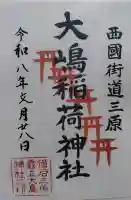 西國街道三原
大嶋稲荷神社
令和八年文月廿八日